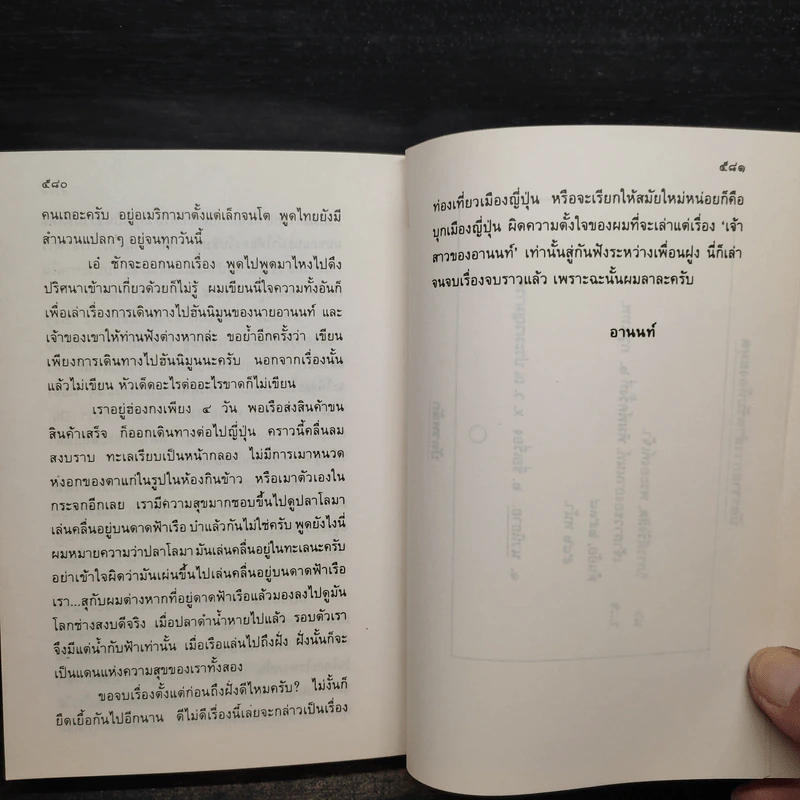 ๕๘๐
คนเถอะครับ อยู่อเมริกามาตั้งแต่เล็กจนโต พูดไทยยังมี
สำนวนแปลกๆ อยู่จนทุกวันนี้
เอ๋ ชักจะออกนอกเรื่อง พูดไปพูดมาไหงไปดึง
ปริศนาเข้ามาเกี่ยวด้วยก็ไม่รู้ ผมเขียนนี่ใจความทั้งอันก็
เพื่อเล่าเรื่องการเดินทางไปฮันนิมูนของนายอานนท์ และ
เจ้าของเขาให้ท่านฟังต่างหากล่ะ ขอย้ำอีกครั้งว่า เขียน
เพียงการเดินทางไปฮันนิมูนนะครับ นอกจากเรื่องนั้น
แล้วไม่เขียน หัวเด็ดอะไรต่ออะไรขาดก็ไม่เขียน
เราอยู่ฮ่องกงเพียง ๔ วัน พอเรือส่งสินค้าขน
สินค้าเสร็จ ก็ออกเดินทางต่อไปญี่ปุ่น คราวนี้คลื่นลม
สงบราบ ทะเลเรียบเป็นหน้ากลอง ไม่มีการเมาหนวด
หงอกของตาแก่ในรูปในห้องกินข้าว หรือเมาตัวเองใน
กระจกอีกเลย เรามีความสุขมากชอบขึ้นไปดูปลาโลมา
เล่นคลื่นอยู่บนดาดฟ้าเรือ บ๋าแล้วกันไม่ใช่ครับ พูดยังไงนี่
ผมหมายความว่าปลาโลมา มันเล่นคลื่นอยู่ในทะเลนะครับ
อย่าเข้าใจผิดว่ามันเผ่นขึ้นไปเล่นคลื่นอยู่บนดาดฟ้าเรือ
เรา...สุกับผมต่างหากที่อยู่ดาดฟ้าเรือแล้วมองลงไปดูมัน
โลกช่างสงบดีจริง เมื่อปลาดำน้ำหายไปแล้ว รอบตัวเรา
จึงมีแต่น้ำกับฟ้าเท่านั้น เมื่อเรือแล่นไปถึงฝั่ง ฝั่งนั้นก็จะ
เป็นแดนแห่งความสุขของเราทั้งสอง
ขอจบเรื่องตั้งแต่ก่อนถึงฝั่งดีไหมครับ? ไม่งั้นก็
ยืดเยื้อกันไปอีกนาน ดีไม่ดีเรื่องนี้เลยจะกล่าวเป็นเรื่อง
๕๘๑
ท่องเที่ยวเมืองญี่ปุ่น หรือจะเรียกให้สมัยใหม่หน่อยก็คือ
บุกเมืองญี่ปุ่น ผิดความตั้งใจของผมที่จะเล่าแต่เรื่อง ‘เจ้า
สาวของอานนท์’ เท่านั้นสู่กันฟังระหว่างเพื่อนฝูง นี่ก็เล่า
จนจบเรื่องจบราวแล้ว เพราะฉะนั้นผมลาละครับ
อานนท์